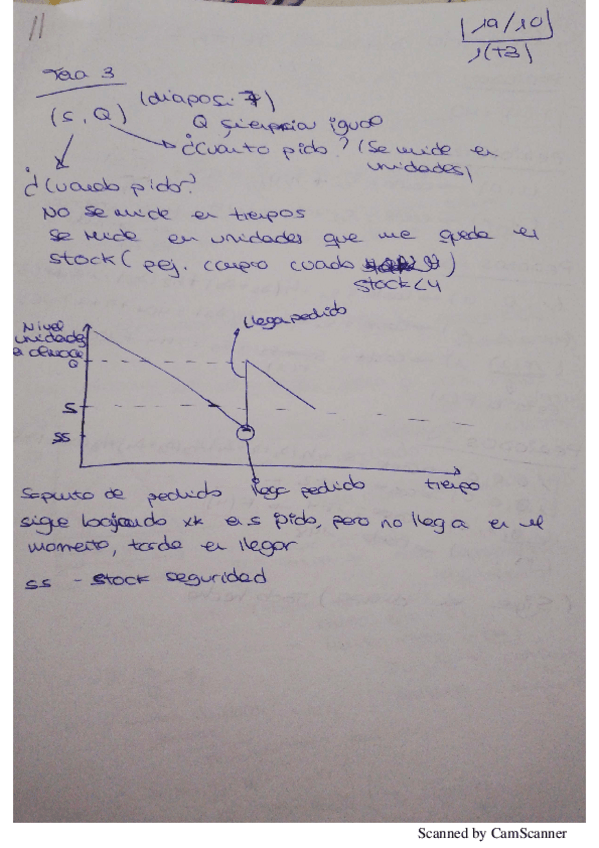 11
19/10
1(T3)
Tema 3
(s, Q) (diapos. 7)
Q siempre igual
¿Cuánto pido? (Se mide en
unidades)
¿Cuando pido?
No se mide en tiempos
se mide en unidades que me queda en
stock (pej. compro cuado
stock<4
llega pedido
Nivel
unidades
Q
S
SS
S punto de pedido
llega pedido
tiempo
sigue bajando xk en s pido, pero no llega en el
momento, tarda en llegar
ss - stock seguridad
Scanned by CamScanner